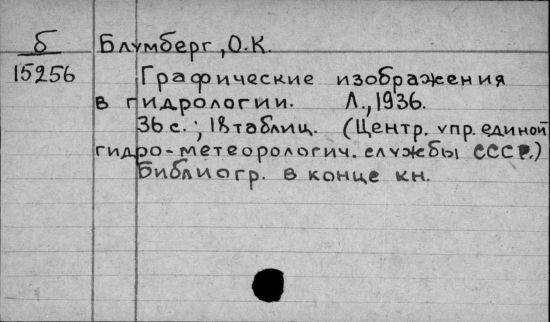 б Блумберг, О.К.
15256 Графические изображения
в гидрологии. Л., 1936.
36 с.; 18 таблиц. (Центр. упр. единой
гидро-метеорологич. службы СССР.)
Библиогр. в конце кн.